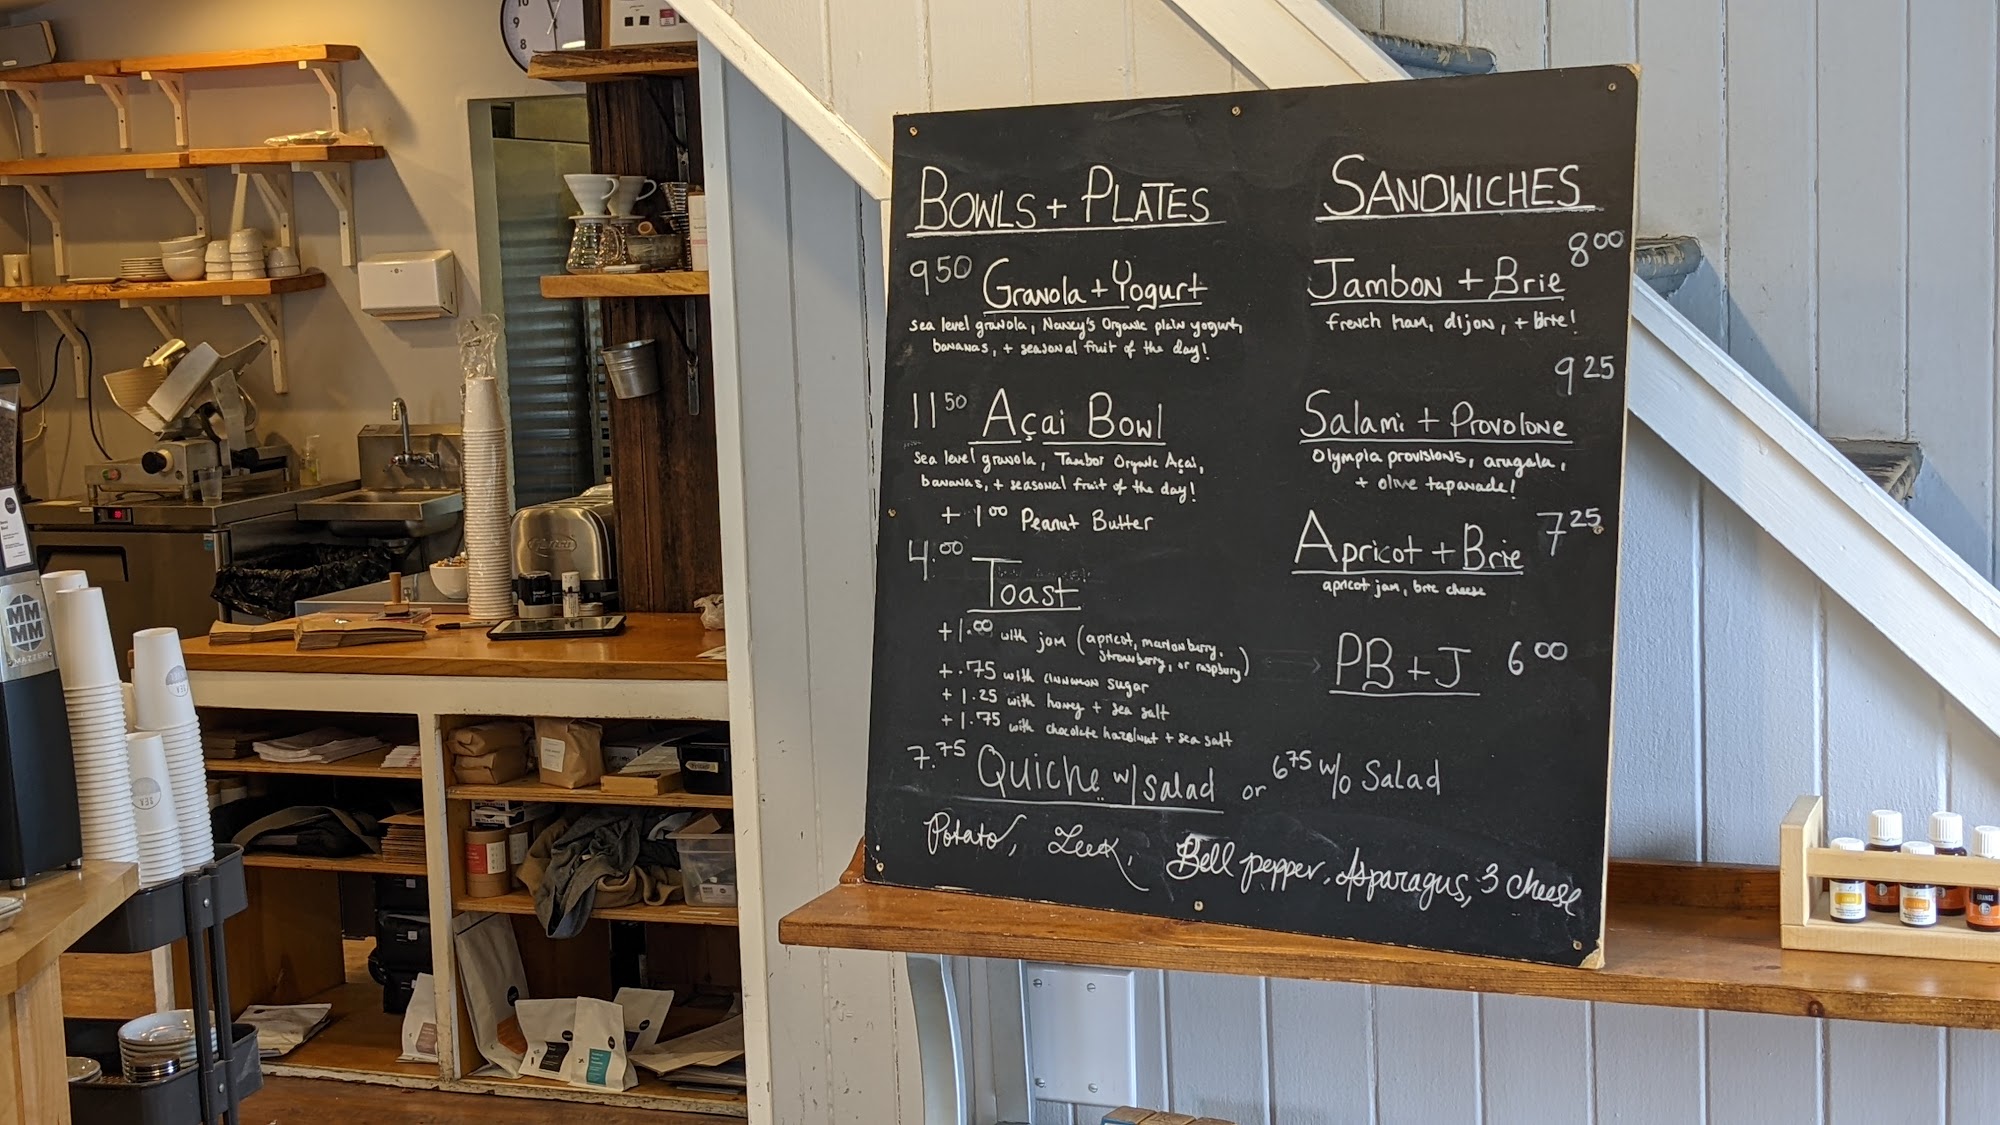 BOWLS + PLATES
9 50 GRANOLA + YOGURT
sea level granola, Nancy's Organic plain yogurt,
bananas, + seasonal fruit of the day!
11 50 AÇAI BOWL
sea level granola, Tambor Organic Açai,
bananas, + seasonal fruit of the day!
+ 1 00 Peanut Butter
4.00
Toast
+1.00 with jam (apricot, marionberry,
strawberry, or raspberry)
+.75 with cinnamon sugar
+1.25 with honey + sea salt
+1.75 with chocolate hazelnut + sea salt
7.75 QUICHE w/ salad or 6 75 w/o Salad
Potato, Leek, Bell pepper, Asparagus, 3 cheese
SANDWICHES
8 00
Jambon + Brie
french ham, dijon, + brie!
9 25
Salami + Provolone
Olympia provisions, arugala,
+ olive tapanade!
Apricot + Brie 7 25
apricot jam, brie cheese
PB + J 6 00
MM
MM
MAZZER
SEA